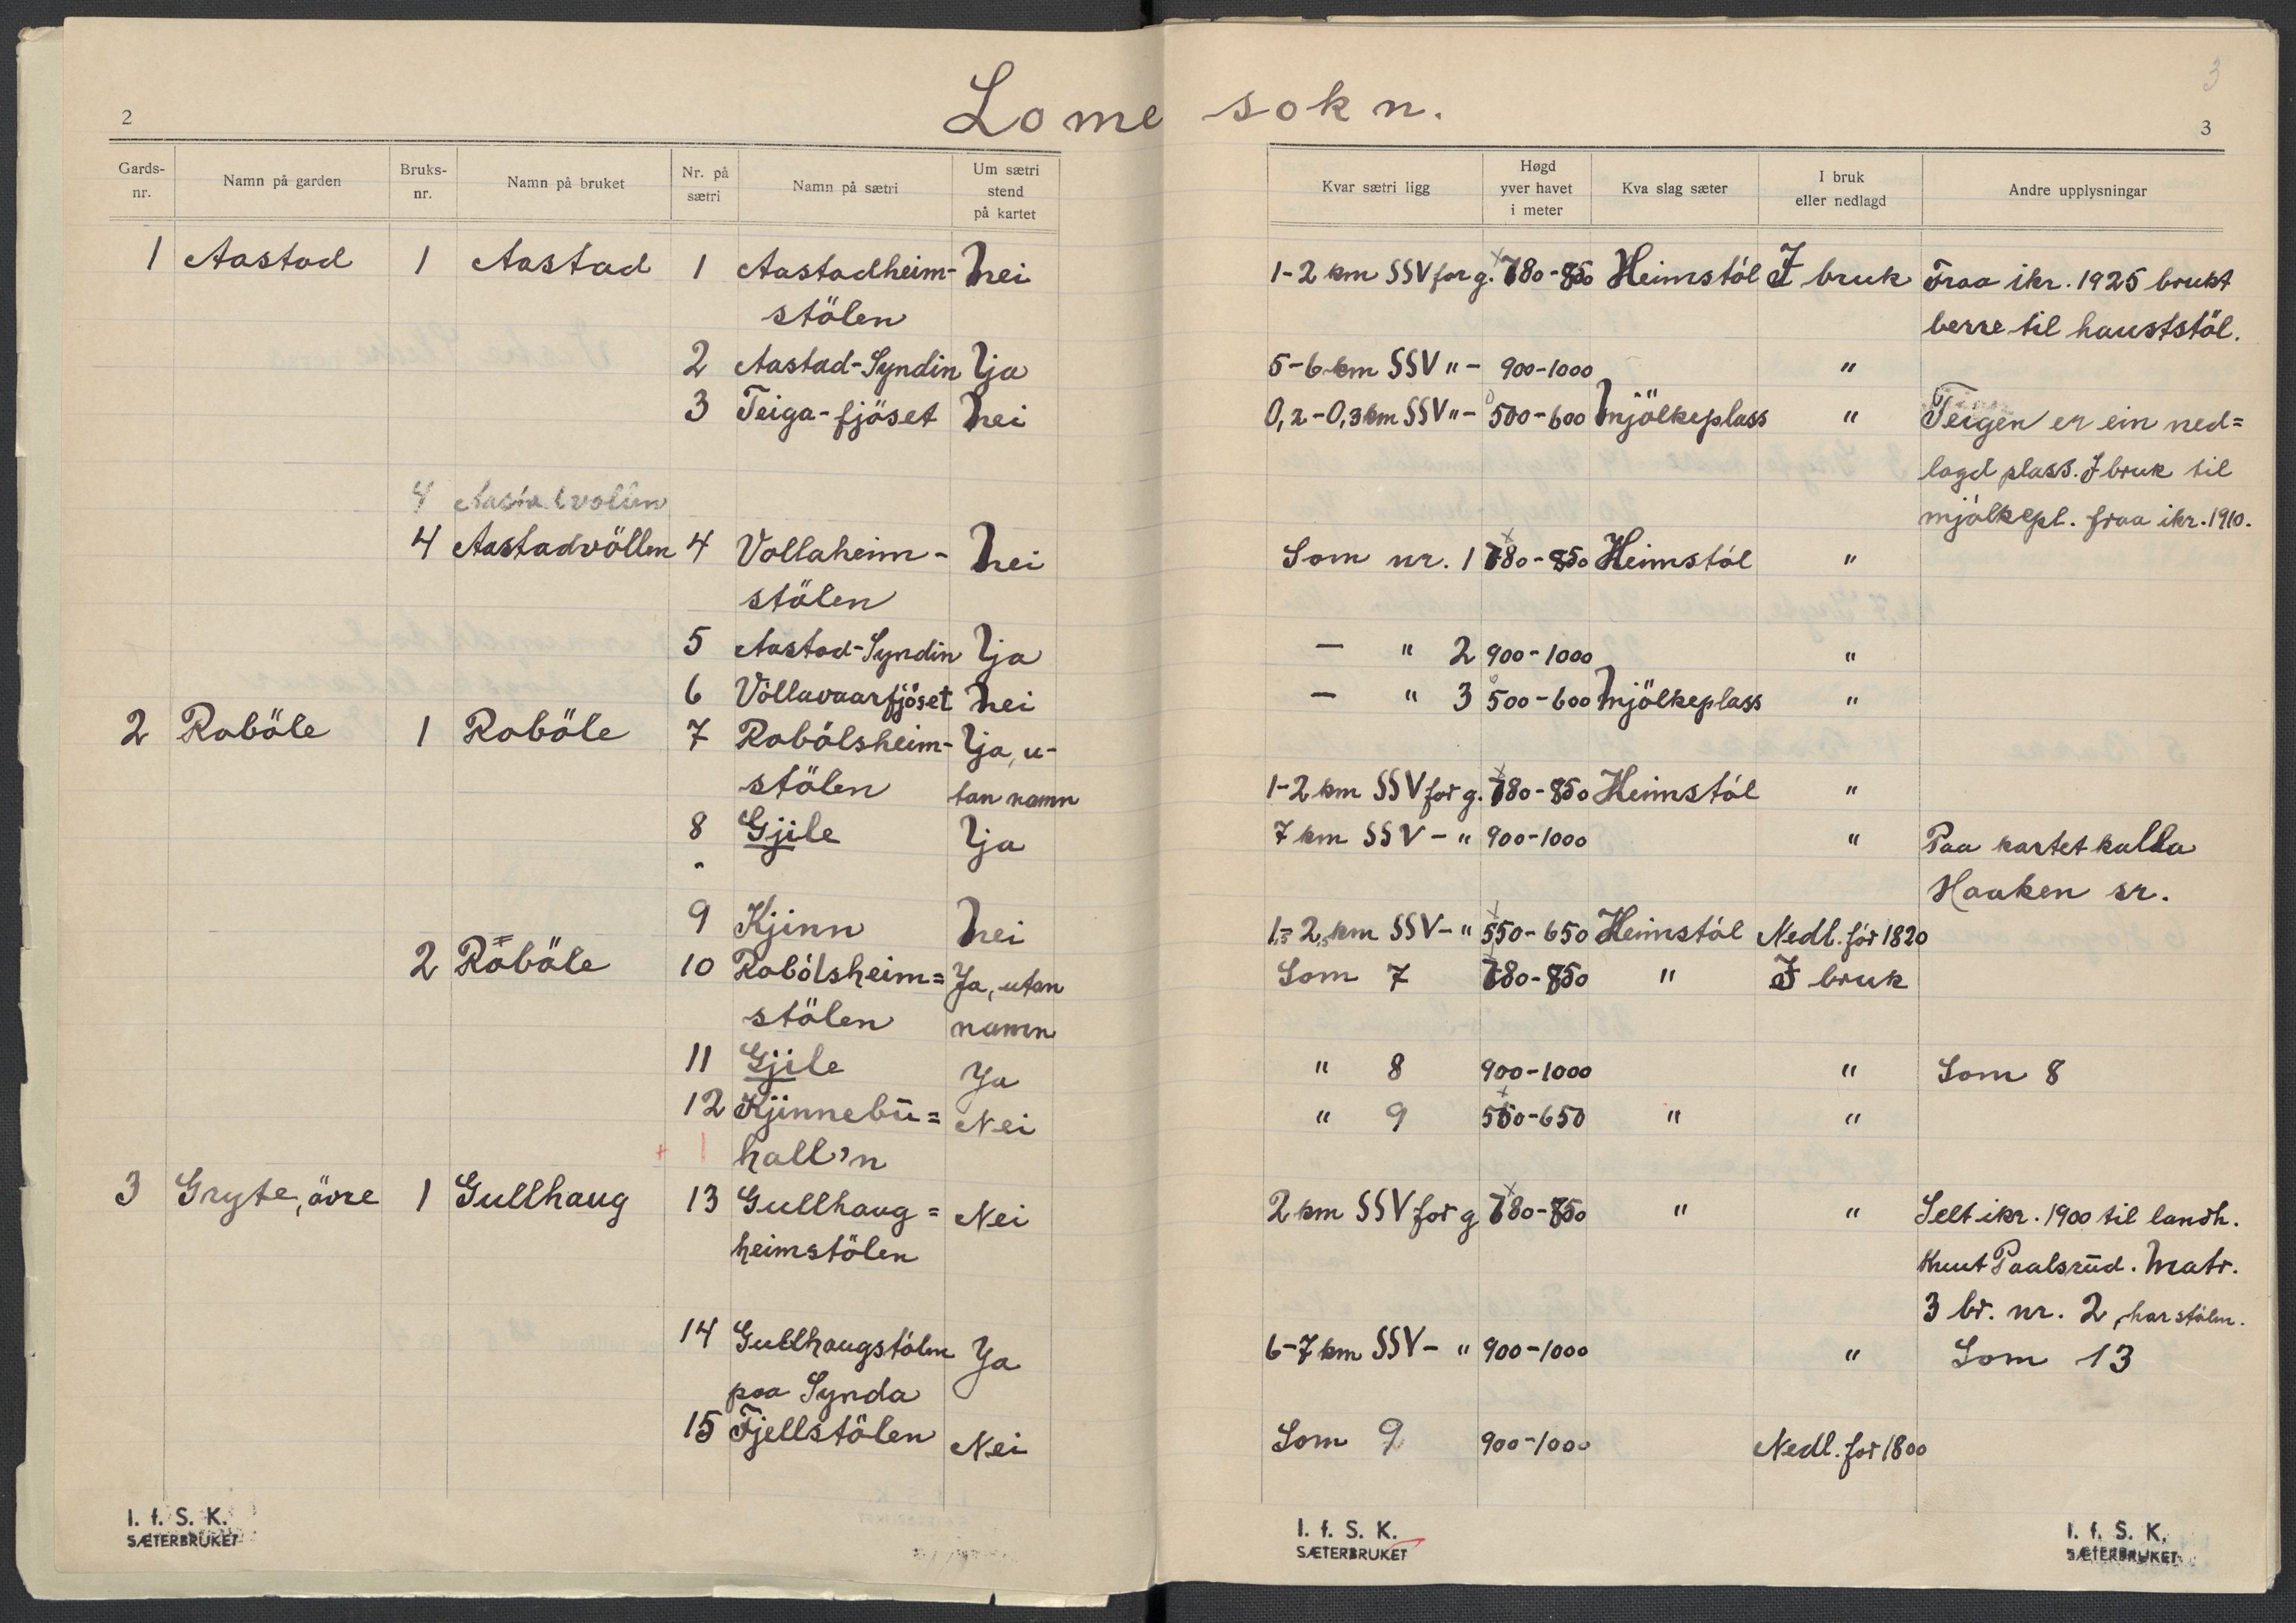 Lome sokn.
2
3
3
Gards-nr. Namn på garden Bruks-nr. Namn på bruket Nr. på sætri Namn på sætri Um sætri stend på kartet Kvar sætri ligg Høgd yver havet i meter Kva slag sæter I bruk eller nedlagd Andre upplysningar
1 Aastad 1 Aastad 1 Aastadheim- Nei 1-2 km SSV for g. 780-850 Heimstöl I bruk Fraa ikr. 1925 brukt
stölen berre til hauststöl.
2 Aastad-Syndin Ja 5-6 km SSV " - 900-1000 "
3 Teiga-fjöset Nei 0,2-0,3 km SSV " - 500-600 Mjölkeplass " Teigen er ein ned=
lagd plass. I bruk til
4 Aastadvollen mjölkepl. fraa ikr. 1910.
4 Aastadvöllen 4 Vollaheim- Nei Som nr. 1 780-850 Heimstöl "
stölen
5 Aastad-Syndin Ja — " 2 900-1000 "
6 Völlavaarfjöset Nei — " 3 500-600 Mjölkeplass "
2 Roböle 1 Roböle 7 Robölsheim- Ja, u-
stölen tan namn 1-2 km SSV for g. 780-850 Heimstöl "
8 Gjile Ja 7 km SSV - " 900-1000 " Paa kartet kalla
Haaken sr.
9 Kjinn Nei 1,5-2,5 km SSV - " 550-650 Heimstöl Nedl. för 1820
2 Roböle 10 Robölsheim= Ja, utan Som 7 780-850 " I bruk
stölen namn
11 Gjile Ja " 8 900-1000 " Som 8
12 Kjinnebū= Nei " 9 550-650 " "
hall'n
3 Gryte, övre 1 Gullhaug 13 Gullhaug= Nei 2 km SSV for g 780-850 " " Selt ikr. 1900 til landh.
heimstölen Knut Paalsrūd. Matr.
3 br. nr. 2, har stölen.
14 Gullhaugstölen Ja 6-7 km SSV - " 900-1000 " Som 13
paa Synda
15 Fjellstölen Nei Som 9 900-1000 Nedl. för 1800
I. f. S. K.
SÆTERBRUKET
I. f. S. K.
SÆTERBRUKET
I. f. S. K.
SÆTERBRUKET